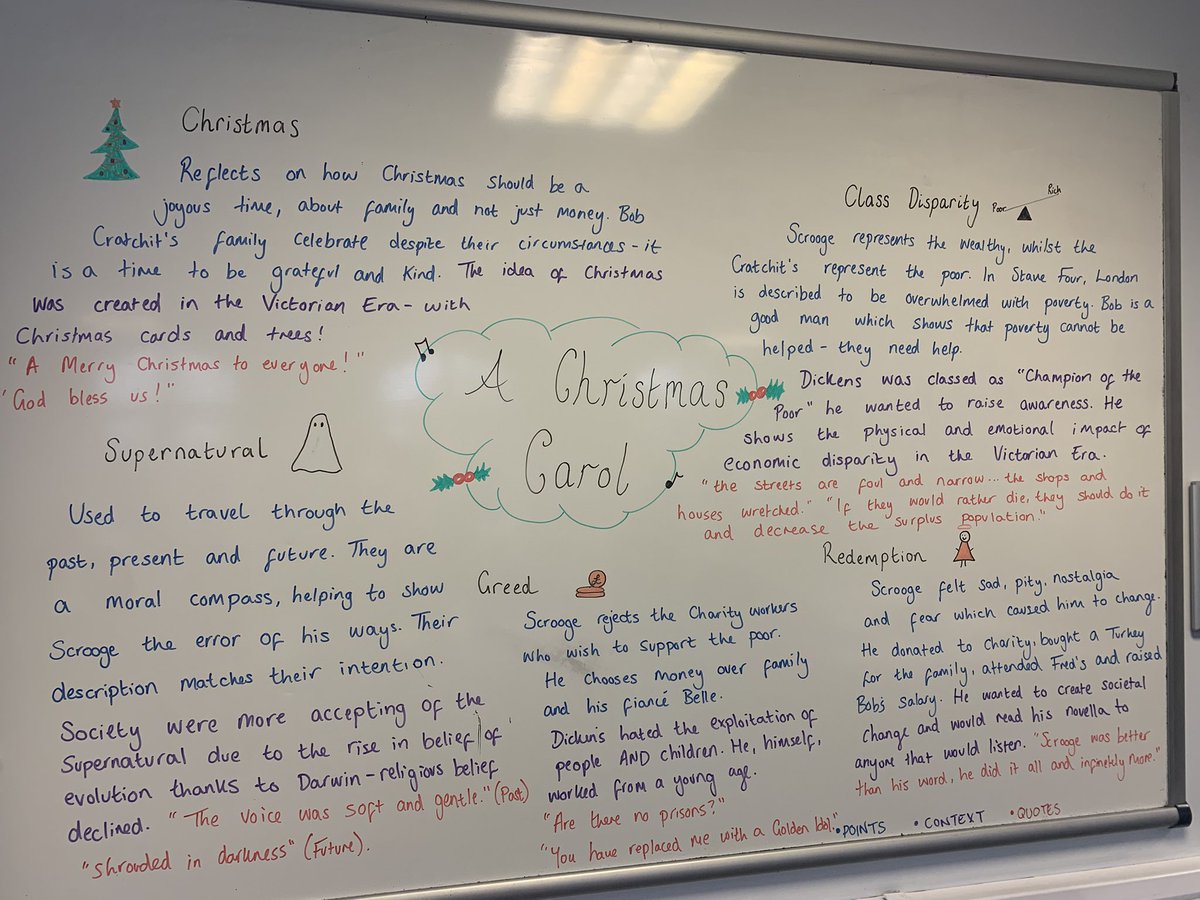 Christmas
Reflects on how Christmas should be a
joyous time, about family and not just money. Bob
Cratchit's family celebrate despite their circumstances - it
is a time to be grateful and kind. The idea of Christmas
was created in the Victorian Era - with
Christmas cards and trees!
"A Merry Christmas to everyone!"
"God bless us!"
A Christmas
Carol
Class Disparity
Poor
Rich
Scrooge represents the wealthy, whilst the
Cratchit's represent the poor. In Stave Four, London
is described to be overwhelmed with poverty. Bob is a
good man which shows that poverty cannot be
helped - they need help.
Dickens was classed as "Champion of the
Poor" he wanted to raise awareness. He
shows the physical and emotional impact of
economic disparity in the Victorian Era.
"the streets are foul and narrow... the shops and
houses wretched." "If they would rather die, they should do it
and decrease the surplus population."
Supernatural
Used to travel through the
past, present and future. They are
a moral compass, helping to show
Scrooge the error of his ways. Their
description matches their intention.
Society were more accepting of the
Supernatural due to the rise in belief of
evolution thanks to Darwin - religious belief
declined. "The voice was soft and gentle." (Past)
"shrouded in darkness" (Future).
Greed
£
Scrooge rejects the Charity workers
who wish to support the poor.
He chooses money over family
and his fiancé Belle.
Dickens hated the exploitation of
people AND children. He, himself,
worked from a young age.
"Are there no prisons?"
"You have replaced me with a Golden Idol."
Redemption
Scrooge felt sad, pity, nostalgia
and fear which caused him to change.
He donated to charity, bought a Turkey
for the family, attended Fred's and raised
Bob's salary. He wanted to create societal
change and would read his novella to
anyone that would listen. "Scrooge was better
than his word, he did it all and infinitely more."
• POINTS • CONTEXT • QUOTES